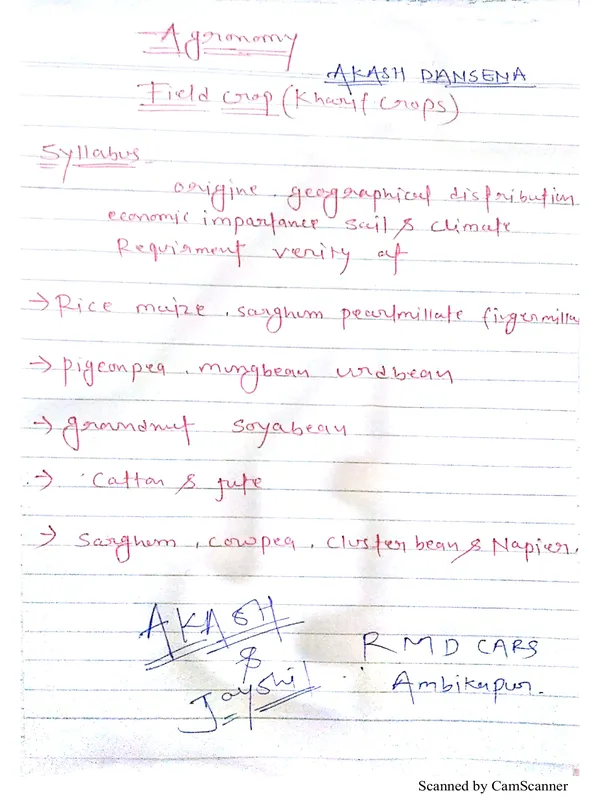 Agronomy
AKASH DANSENA
Field crop (Kharif crops)
Syllabus
origine geographical distribution
economic impartance sail & climate
Requirment verity of
→ Rice maize, sarghum pearlmillate fingermilla
→ pigeonpea, mungbean urdbean
→ groundnut soyabean
→ Catton & jute
→ Sarghum, cowpea, cluster bean & Napier.
AKASH
&
Jayshil
RMD CARS
Ambikapur.
Scanned by CamScanner